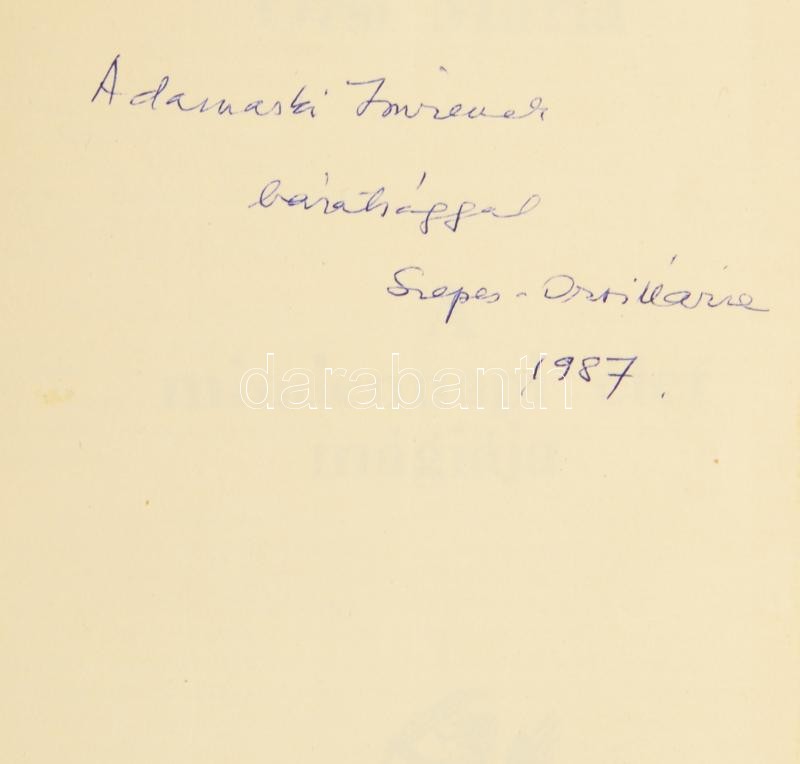 Adamaski Imrenek
barátsággal
Szepes-Orsi Mária
1987.
darabanth